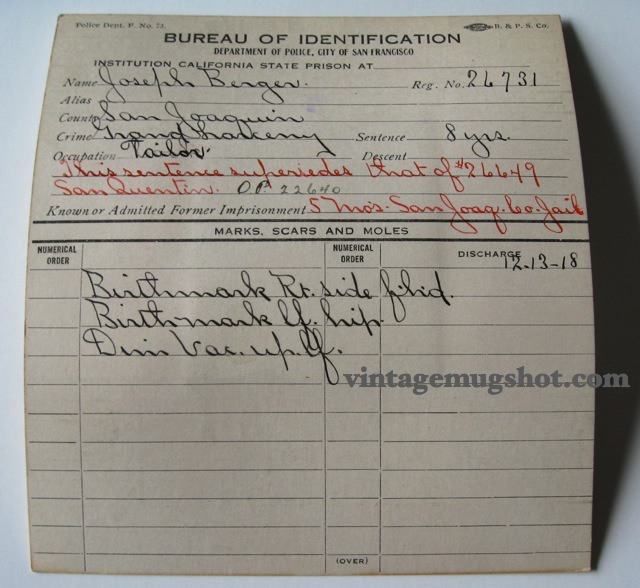 Police Dept. F. No. 73. B. & P. S. Co.
BUREAU OF IDENTIFICATION
DEPARTMENT OF POLICE, CITY OF SAN FRANCISCO
INSTITUTION CALIFORNIA STATE PRISON AT
Name Joseph Berger. Reg. No. 26731
Alias
County San Joaquin
Crime Grand Larceny Sentence 8 yrs.
Occupation Tailor. Descent
This sentence supersedes that of #26649
San Quentin. OP 22640
Known or Admitted Former Imprisonment 5 Mo's. San Joaq. Co. Jail
MARKS, SCARS AND MOLES
NUMERICAL ORDER NUMERICAL ORDER DISCHARGE 12-13-18
Birthmark Rt. side f'h'd.
Birthmark lf. hip.
Dim Vac. up. lf.
vintagemugshot.com
(OVER)